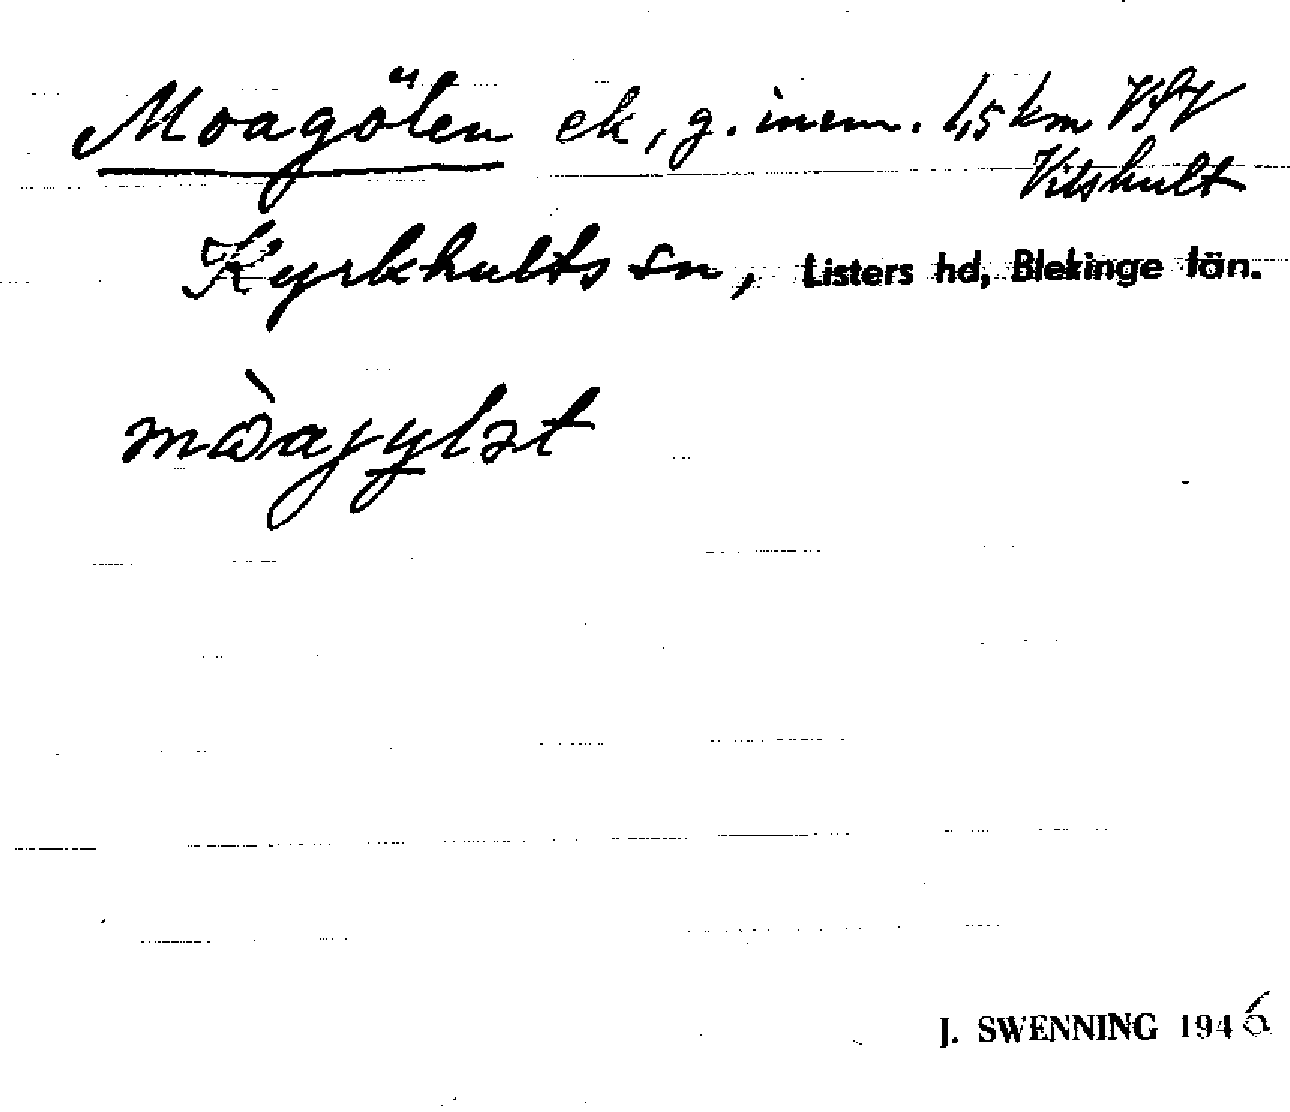 Moagölen ek, g. inem. 1,5 km VSV
Vilshult
Kyrkhults sn, Listers hd, Blekinge län.
J. SWENNING 1946